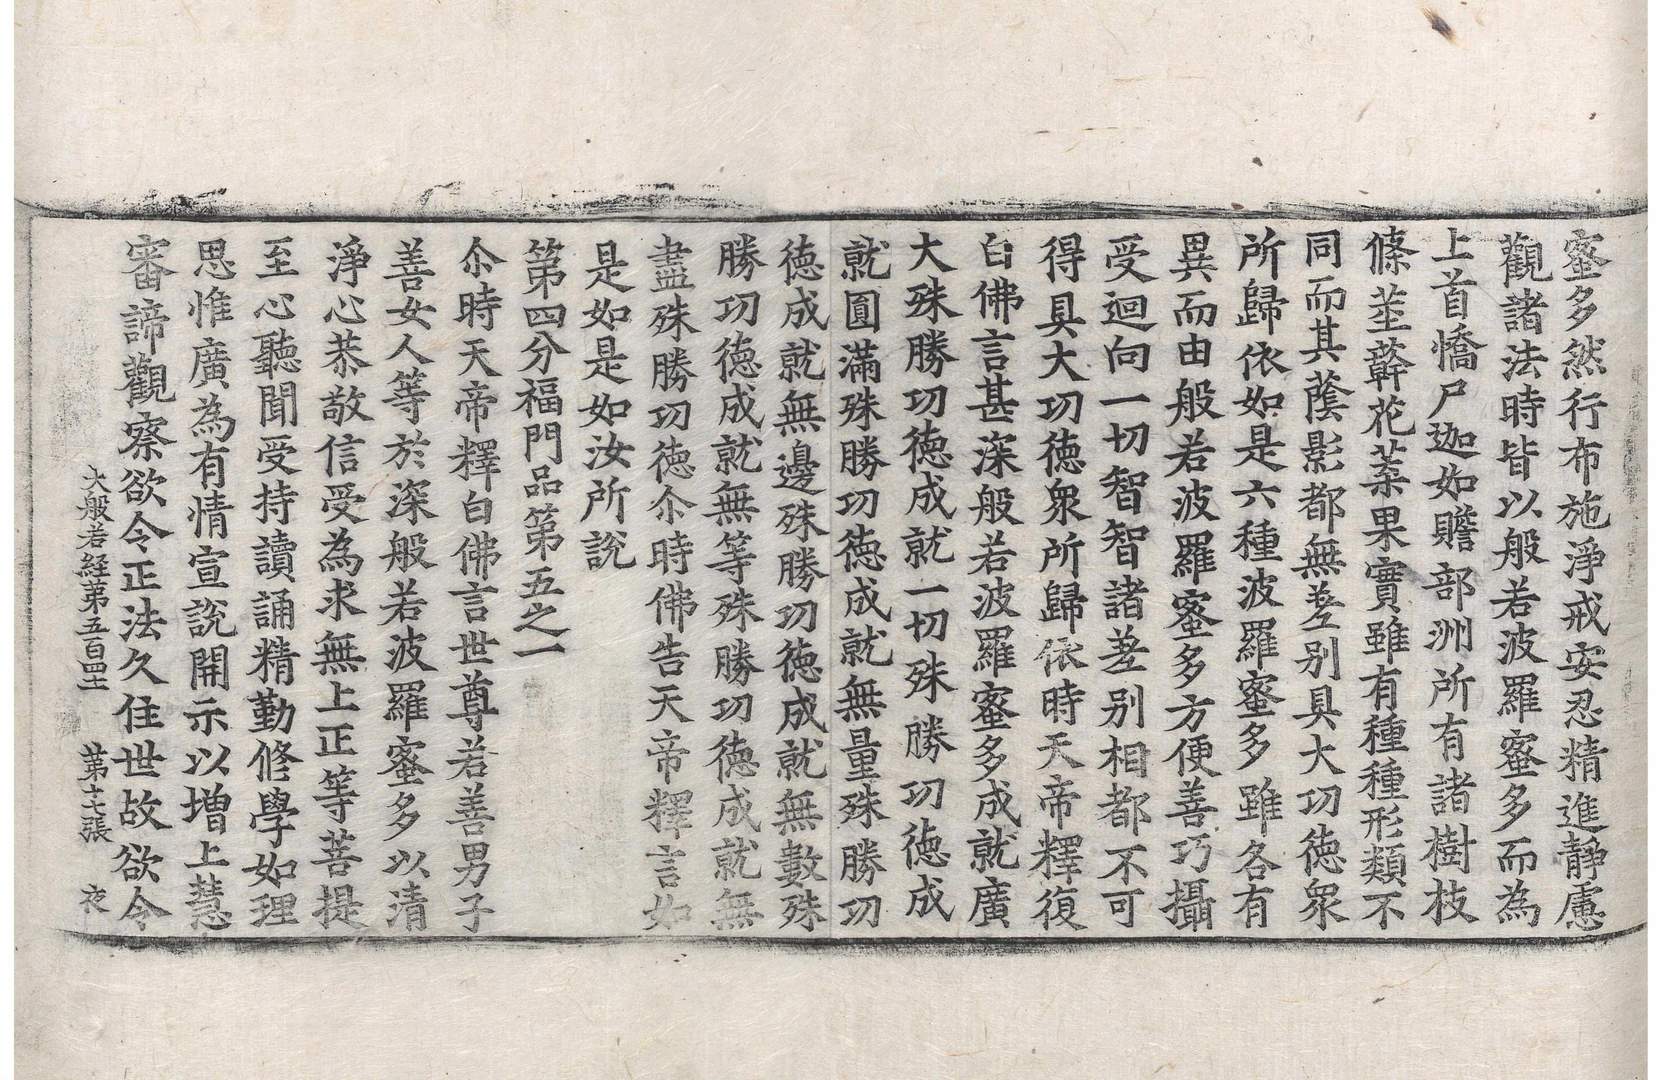 蜜多然行布施淨戒安忍精進靜慮
觀諸法時皆以般若波羅蜜多而為
上首憍尸迦如贍部洲所有諸樹枝
條莖䕃花菓果實雖有種種形類不
同而其蔭影都無差别具大功徳衆
所歸依如是六種波羅蜜多雖各有
異而由般若波羅蜜多方便善巧攝
受迴向一切智智諸差别相都不可
得具大功徳衆所歸依時天帝釋復
白佛言甚深般若波羅蜜多成就廣
大殊勝功徳成就一切殊勝功徳成
就圓滿殊勝功徳成就無量殊勝功
徳成就無邊殊勝功徳成就無數殊
勝功徳成就無等殊勝功徳成就無
盡殊勝功徳尒時佛告天帝釋言如
是如是如汝所說
第四分福門品第五之一
尒時天帝釋白佛言世尊若善男子
善女人等於深般若波羅蜜多以清
淨心恭敬信受為求無上正等菩提
至心聽聞受持讀誦精勤修學如理
思惟廣為有情宣說開示以增上慧
審諦觀察欲令正法久住世故欲令
大般若経苐五百四十 苐十七張 夜